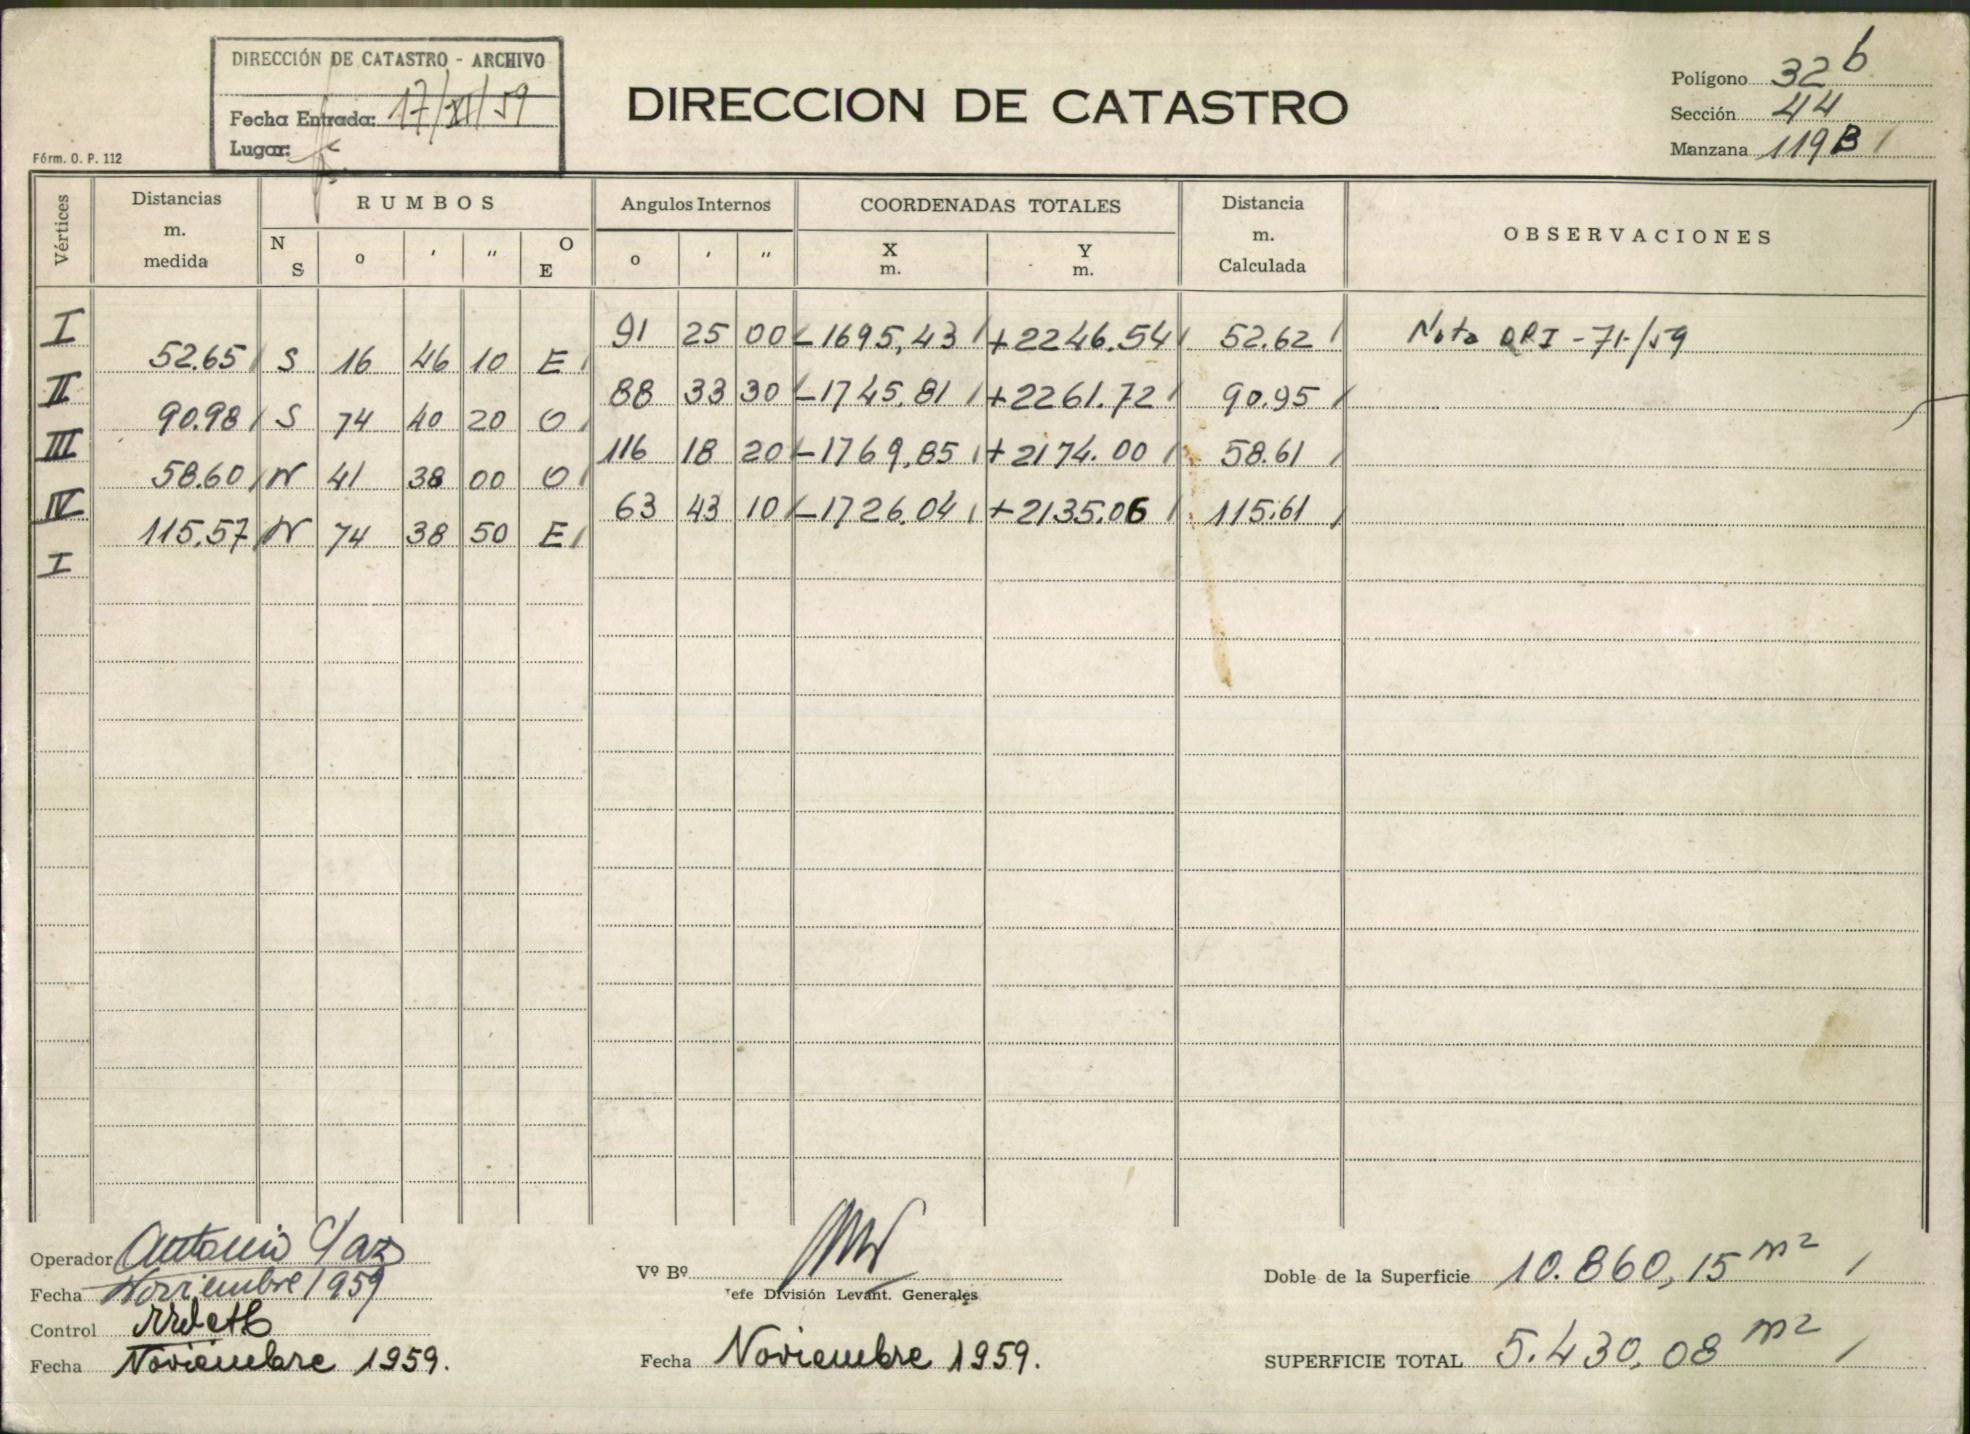 DIRECCIÓN DE CATASTRO - ARCHIVO
Fecha Entrada: 17/XI/59
Lugar:
Fórm. O. P. 112
DIRECCION DE CATASTRO
Polígono 32 b
Sección 44
Manzana 119 B
Vértices
Distancias m. medida
RUMBOS
N S
o ' "
O E
Angulos Internos
o ' "
COORDENADAS TOTALES
X m.
Y m.
Distancia m. Calculada
OBSERVACIONES
I 91 25 00 -1695,43 +2246.54 52.62 Nota DPI -71-/59
52.65 S 16 46 10 E
II 88 33 30 -1745.81 +2261.72 90.95
90.98 S 74 40 20 O
III 116 18 20 -1769,85 +2174.00 58.61
58.60 N 41 38 00 O
IV 63 43 10 -1726.04 +2135.06 115.61
115.57 N 74 38 50 E
I
Operador Antonio
Fecha Noviembre 1959
Control
Fecha Noviembre 1959.
Vº Bº
Jefe División Levant. Generales
Fecha Noviembre 1959.
Doble de la Superficie 10.860,15 m2
SUPERFICIE TOTAL 5.430,08 m2